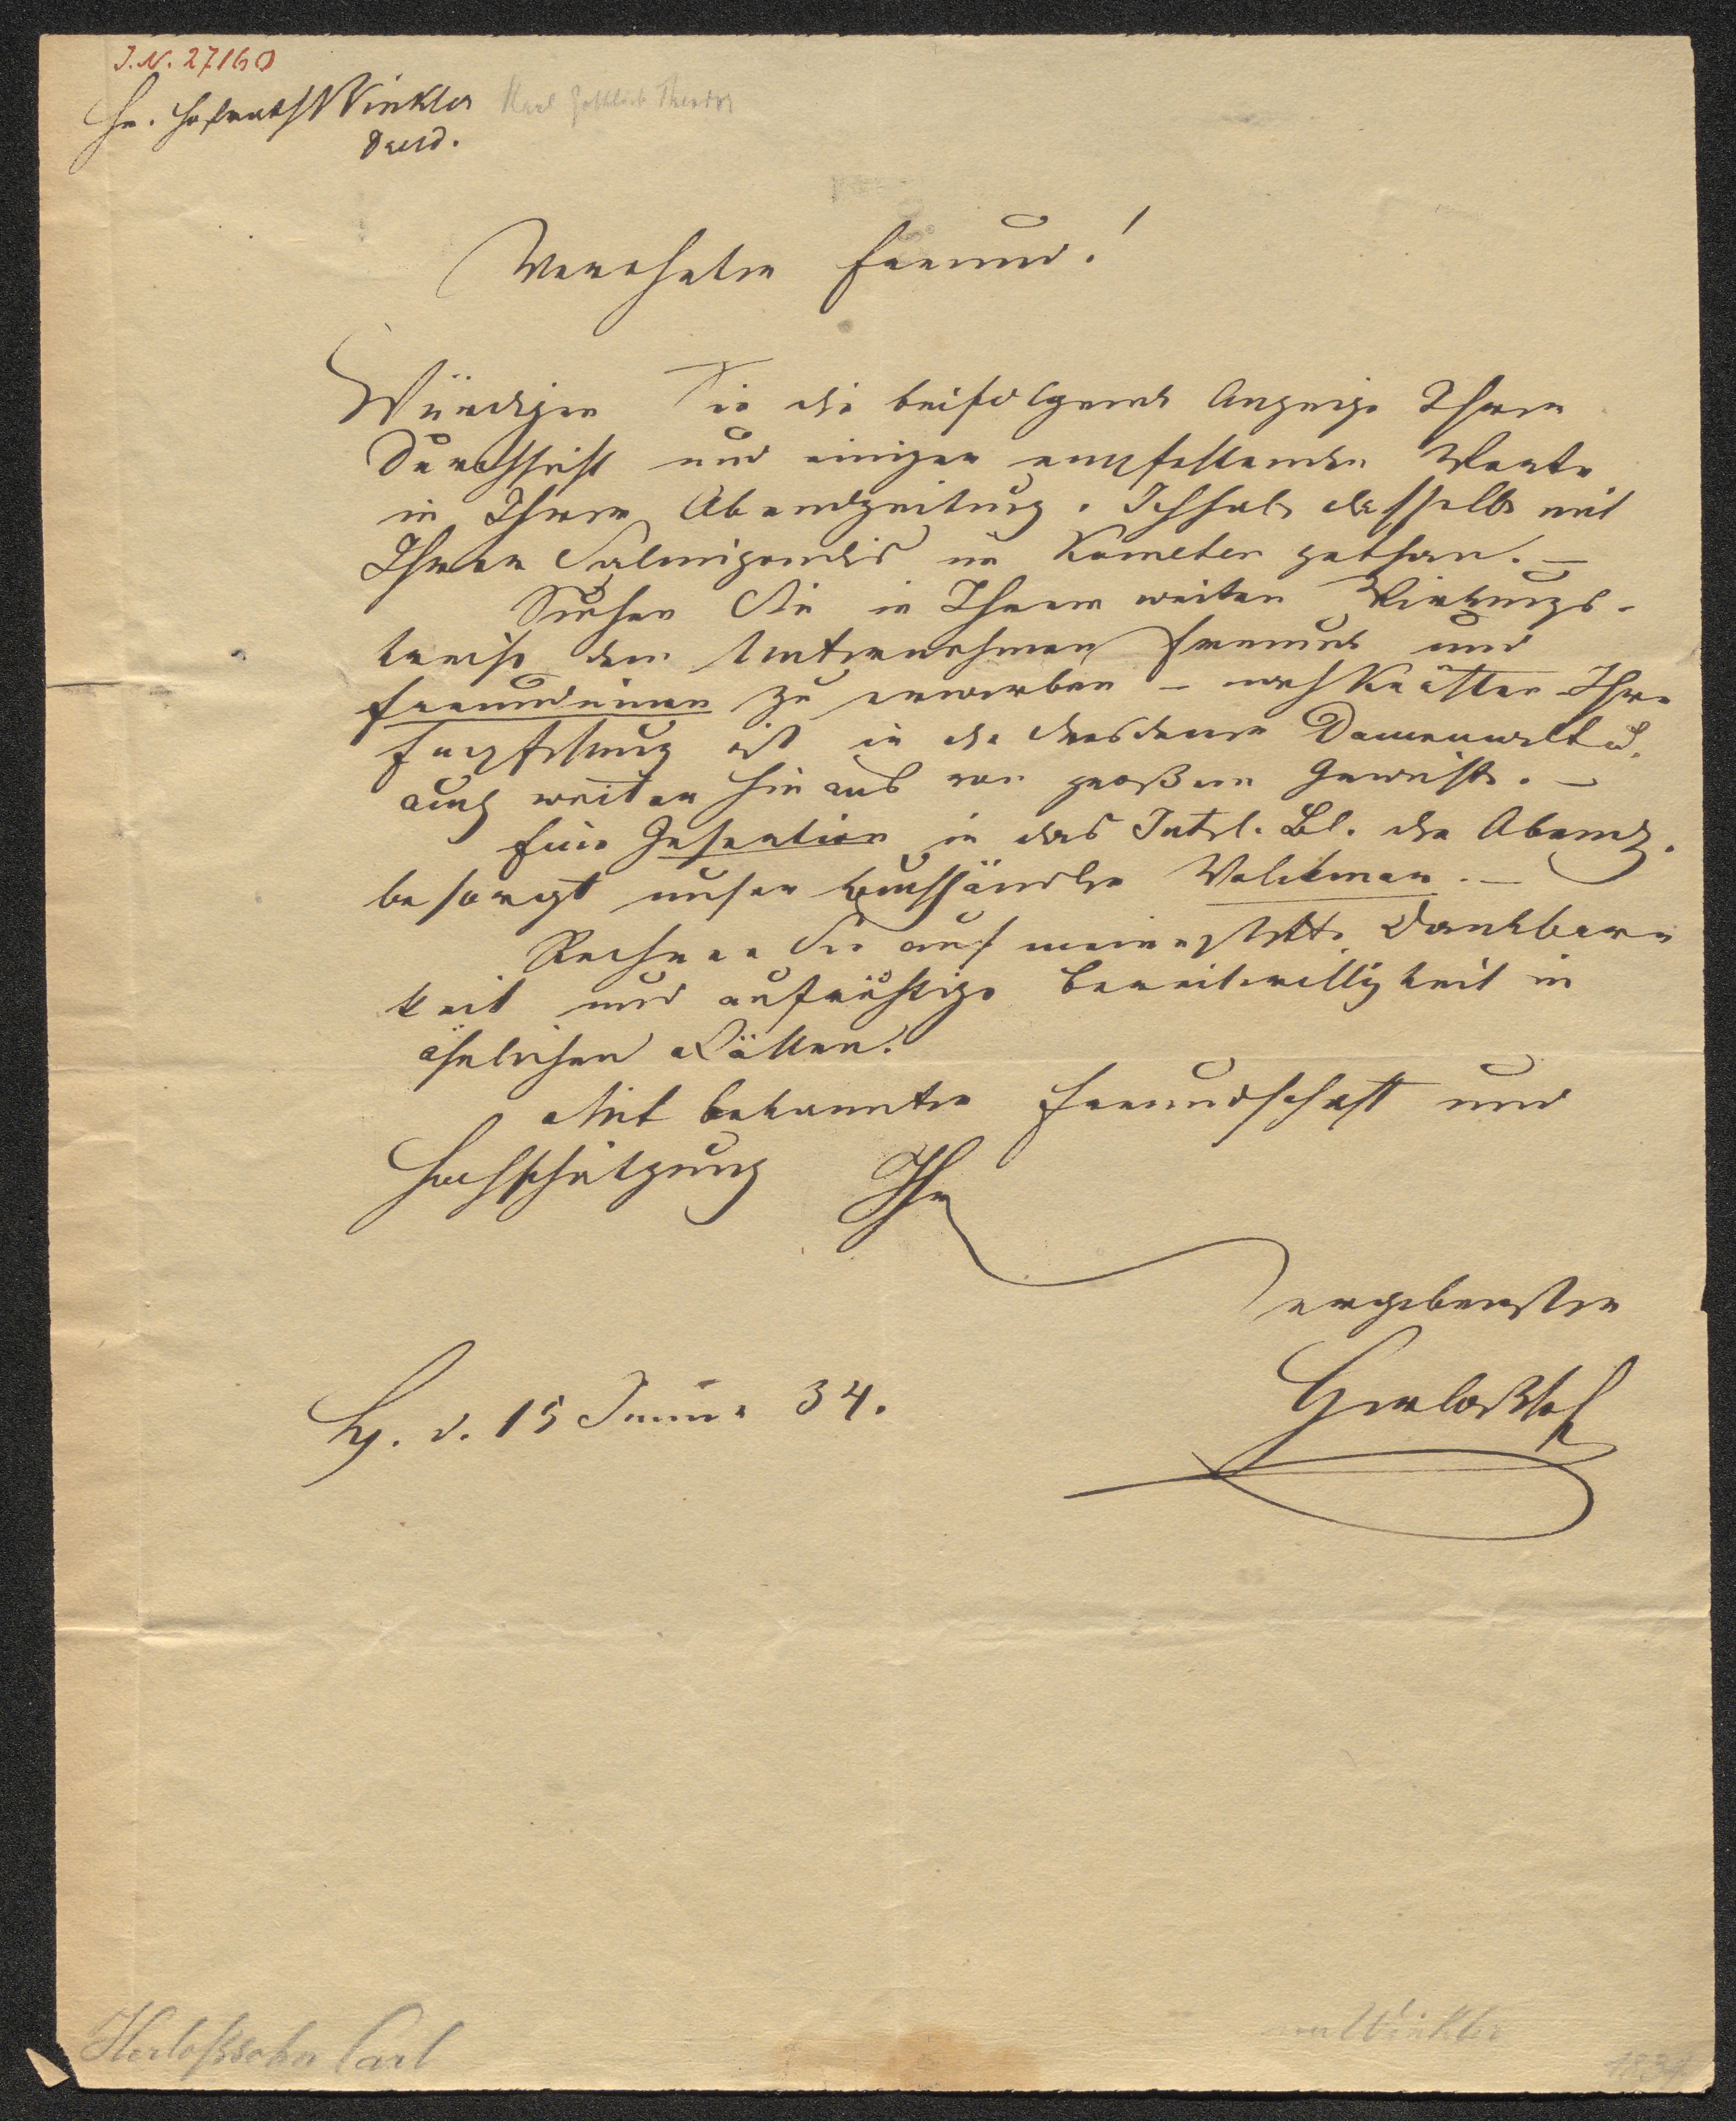 J.N. 27160
Hr. Hofrath Winkler Karl Gottlieb Theodor
Dresd.
Verehrter Freund!
Würdigen Sie die beifolgende Anzeige Ihrer
Durchsicht und einiger empfehlender Worte
in Ihrer Abendzeitung. Ich habe dasselbe mit
Ihrem Salmigondis im Kometen gethan. –
Suchen Sie in Ihrem weiten Wirkungs-
kreise dem Unternehmen Freunde und
Freundinnen zu erwerben – Ihre
Empfehlung ist in der dresdener Damenwelt u.
auch weiter hinaus von großem Gewicht. –
Eine Insertion in das Intel. Bl. der Abendz.
besorgt unser Buchhändler Volckmar. –
Rechnen Sie auf meine stete Dankbar-
keit und aufrichtige Bereitwilligkeit in
ähnlichen Fällen.
Mit bekannter Freundschaft und
Hochschätzung Ihr
ergebenster
Herloßsohn
Lpz. d. 15 34.
Herloßsohn Carl
an Winkler
1834